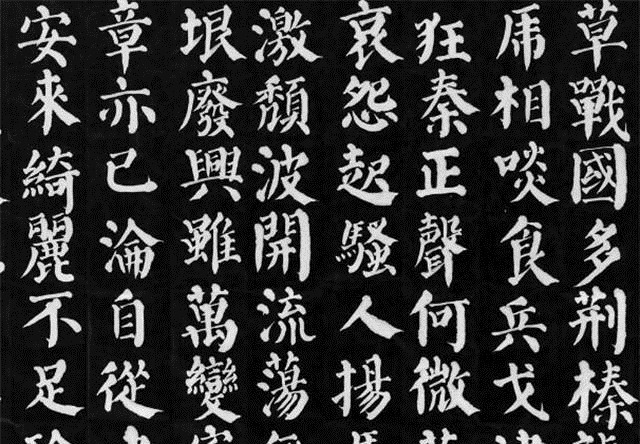 草戰國多荆榛
乕相啖食兵戈
狂秦正聲何微
哀怨起騷人揚
激頽波開流蕩
垠廢興雖萬變
章亦已淪自從
安來綺麗不足